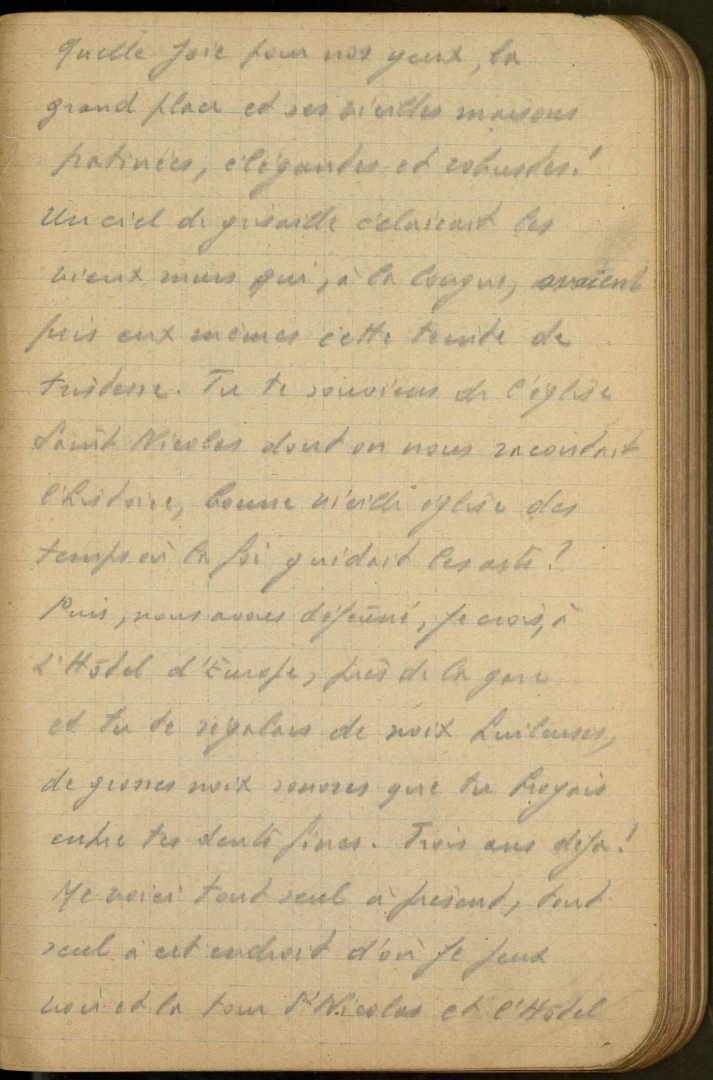 Quelle joie pour nos yeux, la
grand place et ses vieilles maisons
patinées, élégantes et robustes!
Un ciel de grisaille éclairait les
vieux murs qui, à la longue, avaient
pris eux mêmes cette teinte de
tristesse. Tu te souviens de l'église
Saint Nicolas dont on nous racontait
l'histoire, bonne vieille église des
temps où la foi guidait les arts?
Puis, nous avons déjeûné, je crois, à
L'Hôtel d'Europe, près de la gare
et tu te régalais de noix huileuses,
de grosses noix sonores que tu broyais
entre tes dents fines. Trois ans déjà!
Me voici tout seul à présent, tout
seul à cet endroit d'où je peux
voir et la tour St Nicolas et l'Hôtel